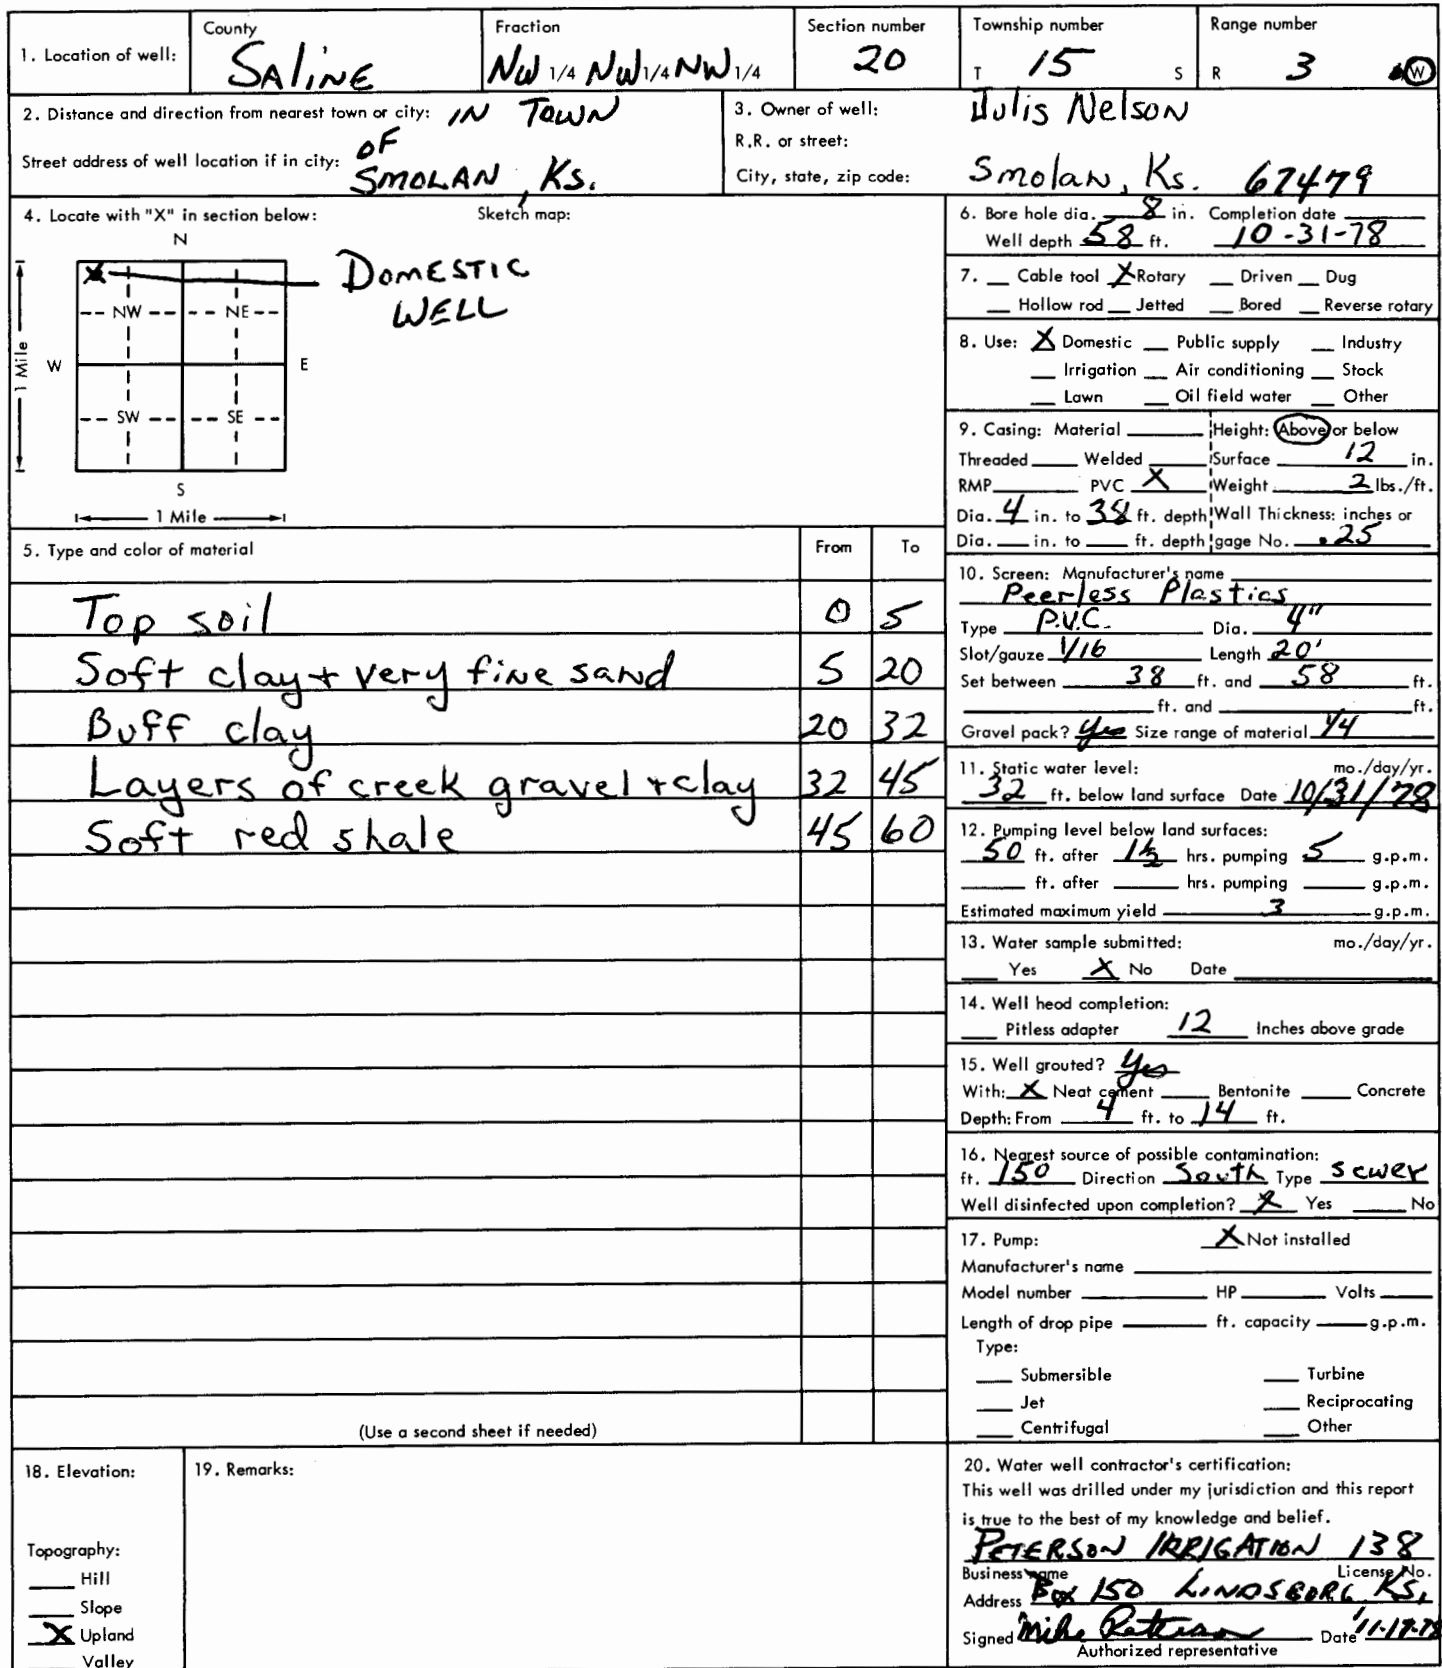 1. Location of well: County SALINE Fraction NW 1/4 NW 1/4 NW 1/4 Section number 20 Township number T 15 S Range number R 3 W
2. Distance and direction from nearest town or city: IN TOWN
OF
Street address of well location if in city: SMOLAN, Ks.
3. Owner of well: Julis Nelson
R.R. or street:
City, state, zip code: Smolan, Ks. 67479
4. Locate with "X" in section below: Sketch map:
N
X
DOMESTIC
WELL
NW NE
1 Mile W E
SW SE
S
1 Mile
5. Type and color of material From To
Top soil 0 5
Soft clay + very fine sand 5 20
Buff clay 20 32
Layers of creek gravel + clay 32 45
Soft red shale 45 60
(Use a second sheet if needed)
6. Bore hole dia. 8 in. Completion date
Well depth 58 ft. 10-31-78
7. Cable tool X Rotary Driven Dug
Hollow rod Jetted Bored Reverse rotary
8. Use: X Domestic Public supply Industry
Irrigation Air conditioning Stock
Lawn Oil field water Other
9. Casing: Material Height: Above or below
Threaded Welded Surface 12 in.
RMP PVC X Weight 2 lbs./ft.
Dia. 4 in. to 38 ft. depth Wall Thickness: inches or
Dia. in. to ft. depth gage No. .25
10. Screen: Manufacturer's name
Peerless Plastics
Type P.V.C. Dia. 4"
Slot/gauze 1/16 Length 20'
Set between 38 ft. and 58 ft.
ft. and ft.
Gravel pack? Yes Size range of material 1/4
11. Static water level: mo./day/yr.
32 ft. below land surface Date 10/31/78
12. Pumping level below land surfaces:
50 ft. after 1½ hrs. pumping 5 g.p.m.
ft. after hrs. pumping g.p.m.
Estimated maximum yield 3 g.p.m.
13. Water sample submitted: mo./day/yr.
Yes X No Date
14. Well head completion:
Pitless adapter 12 Inches above grade
15. Well grouted? Yes
With: X Neat cement Bentonite Concrete
Depth: From 4 ft. to 14 ft.
16. Nearest source of possible contamination:
ft. 150 Direction South Type sewer
Well disinfected upon completion? X Yes No
17. Pump: X Not installed
Manufacturer's name
Model number HP Volts
Length of drop pipe ft. capacity g.p.m.
Type:
Submersible Turbine
Jet Reciprocating
Centrifugal Other
18. Elevation:
Topography:
Hill
Slope
X Upland
Valley
19. Remarks:
20. Water well contractor's certification:
This well was drilled under my jurisdiction and this report
is true to the best of my knowledge and belief.
PETERSON IRRIGATION 138
Business name License No.
Address Box 150 LINDSBORG Ks.
Signed Mike Date 11-17-78
Authorized representative